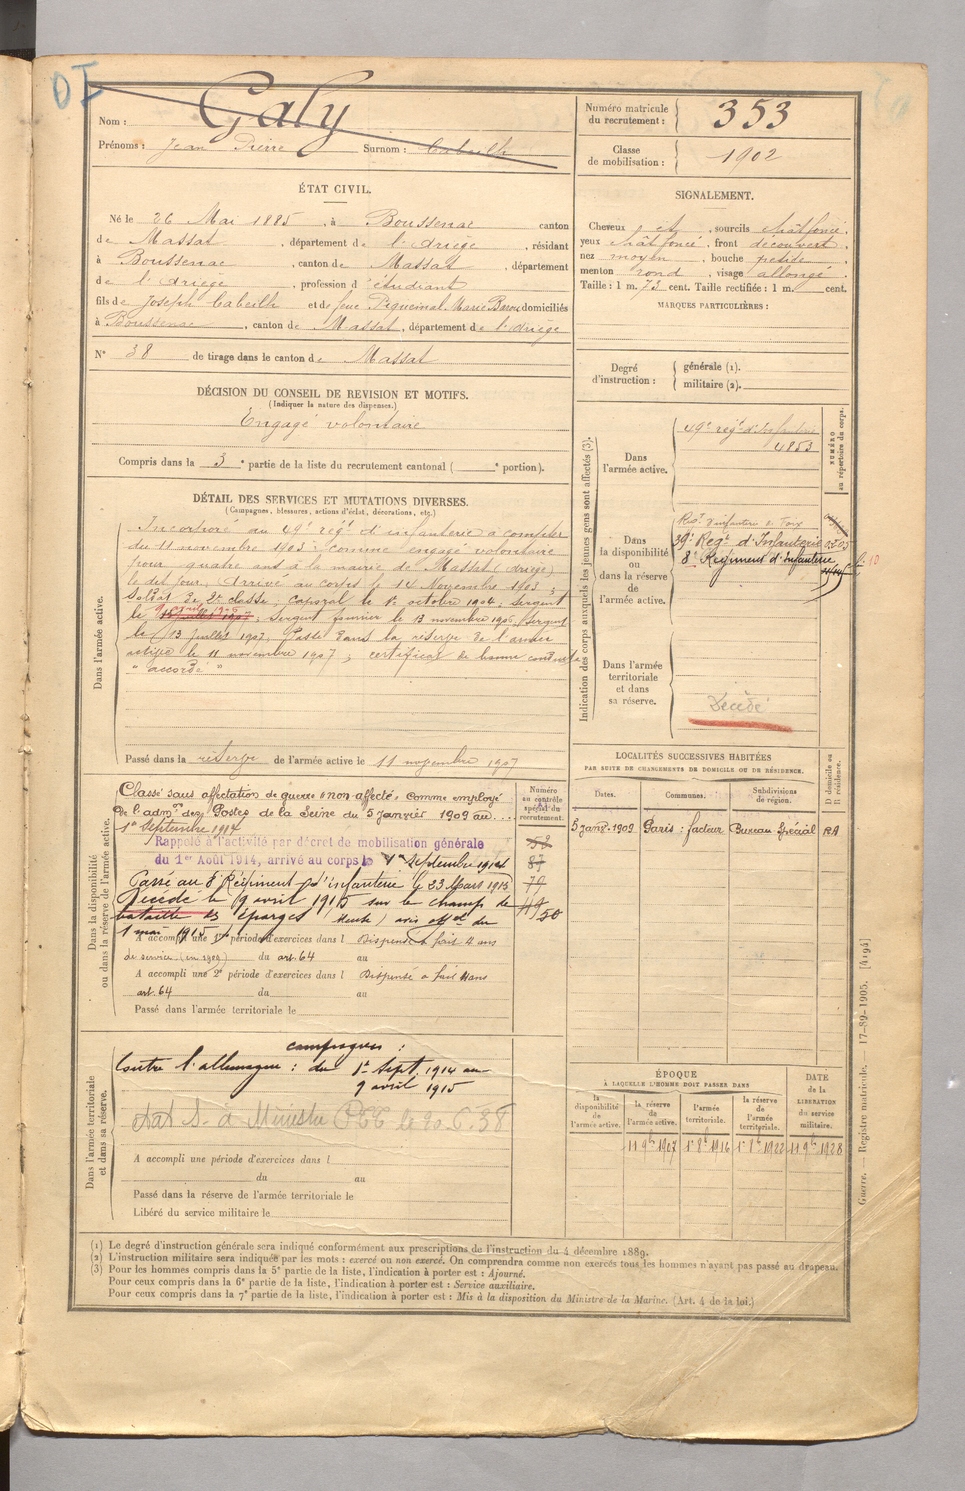 Galy
Nom :
Prénoms : Jean Pierre Surnom : Cabeilh
Numéro matricule du recrutement : 353
Classe de mobilisation : 1902
ÉTAT CIVIL.
Né le 26 Mai 1885, à Boussenac canton
de Massat, département de l'Ariège, résidant
à Boussenac, canton de Massat, département
de l'Ariège, profession d'étudiant
fils de Joseph Cabeilh et de feue Piquemal Marie domiciliés
à Boussenac, canton de Massat, département de l'Ariège
N° 38 de tirage dans le canton de Massat
SIGNALEMENT.
Cheveux et, sourcils chât foncé,
yeux chât foncé, front découvert,
nez moyen, bouche petite,
menton rond, visage allongé.
Taille : 1 m. 73 cent. Taille rectifiée : 1 m. cent.
MARQUES PARTICULIÈRES :
DÉCISION DU CONSEIL DE REVISION ET MOTIFS.
(Indiquer la nature des dispenses.)
Engagé volontaire
Compris dans la 3e partie de la liste du recrutement cantonal ( e portion).
Degré d'instruction :
générale (1).
militaire (2).
DÉTAIL DES SERVICES ET MUTATIONS DIVERSES.
(Campagnes, blessures, actions d'éclat, décorations, etc.)
Dans l'armée active.
Incorporé au 49e régt d'infanterie à compter
du 11 novembre 1903 comme engagé volontaire
pour quatre ans à la mairie de Massat (Ariège)
le dit jour. Arrivé au corps le 14 Novembre 1903 ;
Soldat de 2e classe, caporal le 8 octobre 1904 ; Sergent
le 13 juillet 1907 ; Sergent fourrier le 13 novembre 1906, Sergent
le 13 juillet 1907. Passé dans la réserve de l'armée
active le 11 novembre 1907 ; certificat de bonne conduite
" accordé "
Passé dans la réserve de l'armée active le 11 novembre 1907
Indication des corps auxquels les jeunes gens sont affectés (3).
NUMÉRO au répertoire du corps.
Dans l'armée active.
49e régt d'Infanterie
4853
Dans la disponibilité ou dans la réserve de l'armée active.
Rgt d'infanterie de Foix
59e Regt d'Infanterie
8e Régiment d'Infanterie
Dans l'armée territoriale et dans sa réserve.
Décédé
Dans la disponibilité ou dans la réserve de l'armée active.
Classé sans affectation de guerre "non affecté" comme employé
de l'admon des Postes de la Seine du 5 janvier 1909 au
1er Septembre 1914
Rappelé à l'activité par décret de mobilisation générale
du 1er Août 1914, arrivé au corps le 1er Septembre 1914
Passé au 8e Régiment d'infanterie le 23 Mars 1915
Décédé le 9 avril 1915 sur le champ de
bataille des Eparges (Meuse) avis offel du
1 mai 1915
A accompli une 1re période d'exercices dans l Dispensé a fait 4 ans
de service (en 1909) du art. 64 au
A accompli une 2e période d'exercices dans l Dispensé a fait 4 ans
art. 64 du au
Passé dans l'armée territoriale le
Numéro au contrôle spécial du recrutement.
87
79
49
50
LOCALITÉS SUCCESSIVES HABITÉES
PAR SUITE DE CHANGEMENTS DE DOMICILE OU DE RÉSIDENCE.
Dates. Communes. Subdivisions de région. D domicile ou R résidence.
5 janv. 1909 Paris : facteur Bureau Spécial RA
Dans l'armée territoriale et dans sa réserve.
campagnes :
Contre l'allemagne : du 1er Sept. 1914 au
9 avril 1915
à Ministre PTT le 20.6.38
A accompli une période d'exercices dans l
du au
Passé dans la réserve de l'armée territoriale le
Libéré du service militaire le
ÉPOQUE
À LAQUELLE L'HOMME DOIT PASSER DANS
la disponibilité de l'armée active.
la réserve de l'armée active.
l'armée territoriale.
la réserve de l'armée territoriale.
DATE de la LIBÉRATION du service militaire.
11 9b 1907
1er 8b 1916
1er 8b 1922
11 9b 1928
(1) Le degré d'instruction générale sera indiqué conformément aux prescriptions de l'instruction du 4 décembre 1889.
(2) L'instruction militaire sera indiquée par les mots : exercé ou non exercé. On comprendra comme non exercés tous les hommes n'ayant pas passé au drapeau.
(3) Pour les hommes compris dans la 5e partie de la liste, l'indication à porter est : Ajourné.
Pour ceux compris dans la 6e partie de la liste, l'indication à porter est : Service auxiliaire.
Pour ceux compris dans la 7e partie de la liste, l'indication à porter est : Mis à la disposition du Ministre de la Marine. (Art. 4 de la loi.)
Guerre. — Registre matricule. — 17-89-1905. [4194]